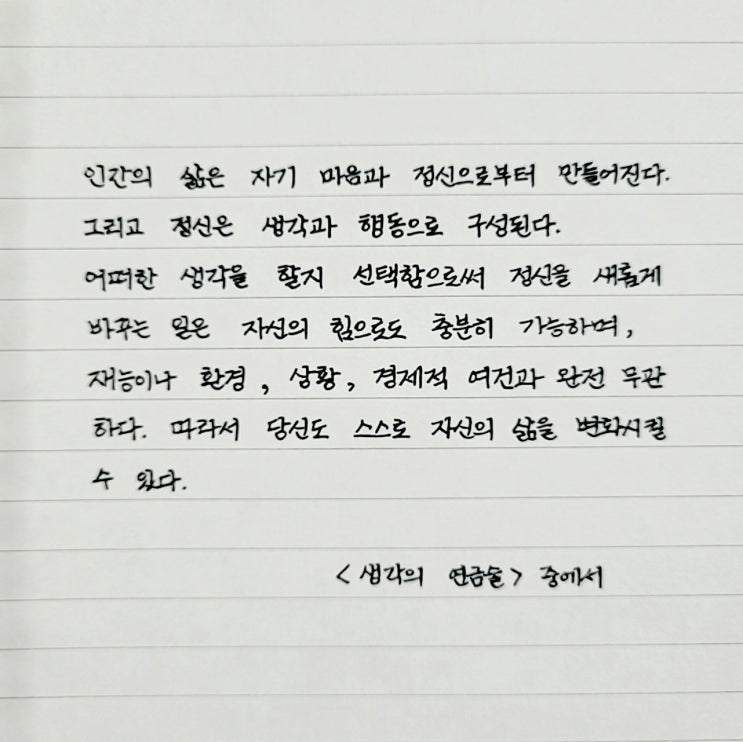 인간의 삶은 자기 마음과 정신으로부터 만들어진다.
그리고 정신은 생각과 행동으로 구성된다.
어떠한 생각을 할지 선택함으로써 정신을 새롭게
바꾸는 일은 자신의 힘으로도 충분히 가능하며,
재능이나 환경, 상황, 경제적 여건과 완전 무관
하다. 따라서 당신도 스스로 자신의 삶을 변화시킬
수 있다.
<생각의 연금술> 중에서